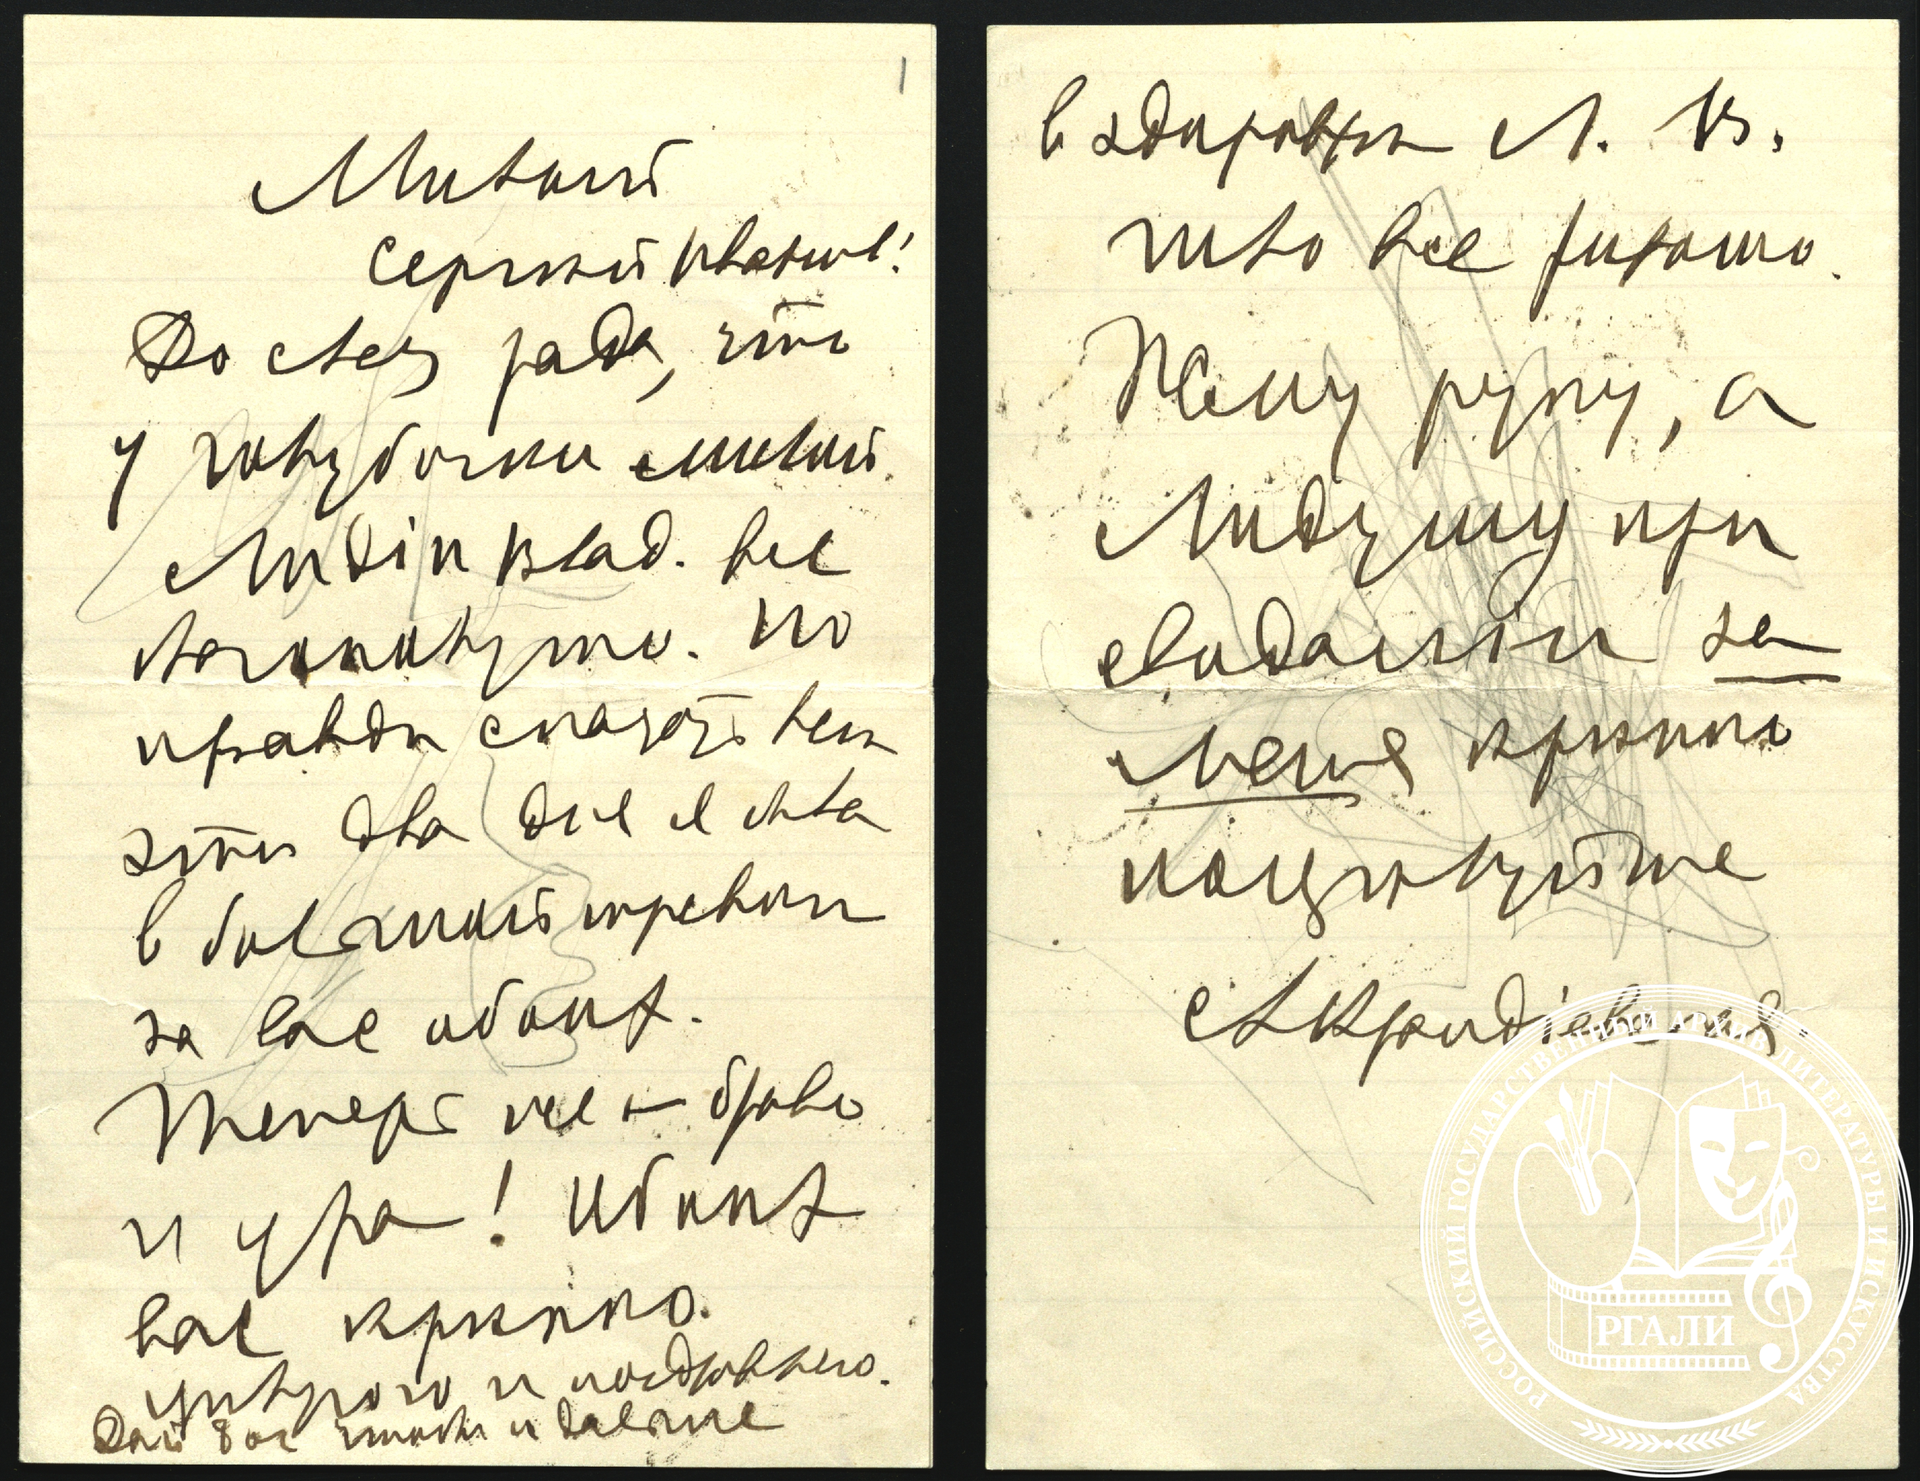 1
Милый
Сергей Иванов!
До слез рада, что
у голубочки милой
Лидіи Влад. все
благополучно. По
правдѣ сказать вамъ
эти два дня я была
в большой тревогѣ
за вас обоих.
Теперь уже — браво
и ура! Обоих
вас крѣпко
цѣлую и поздравляю.
Дай Бог чтобы и дальше
в здоровьи Л. В.
шло все хорошо.
Жму руку, а
Лидушу при
свиданіи за
меня крѣпко
поцѣлуйте
А Крандіевская
РОССИЙСКИЙ ГОСУДАРСТВЕННЫЙ АРХИВ ЛИТЕРАТУРЫ И ИСКУССТВА
РГАЛИ